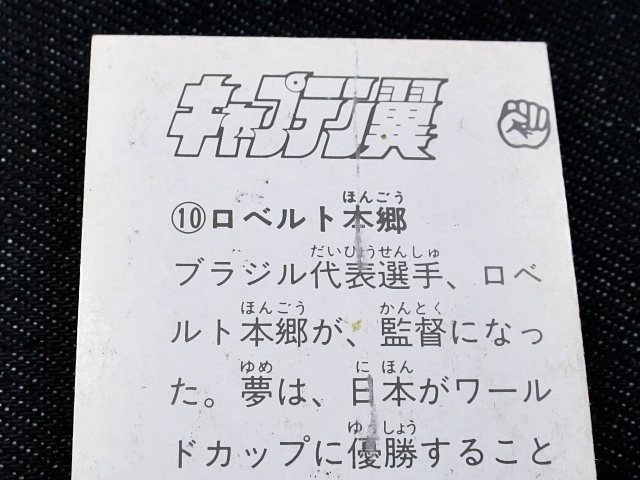 キャプテン翼
ほんごう
⑩ロベルト本郷
だいひょうせんしゅ
ブラジル代表選手、ロベ
ほんごう かんとく
ルト本郷が、監督になっ
ゆめ に ほん
た。夢は、日本がワール
ゆうしょう
ドカップに優勝すること